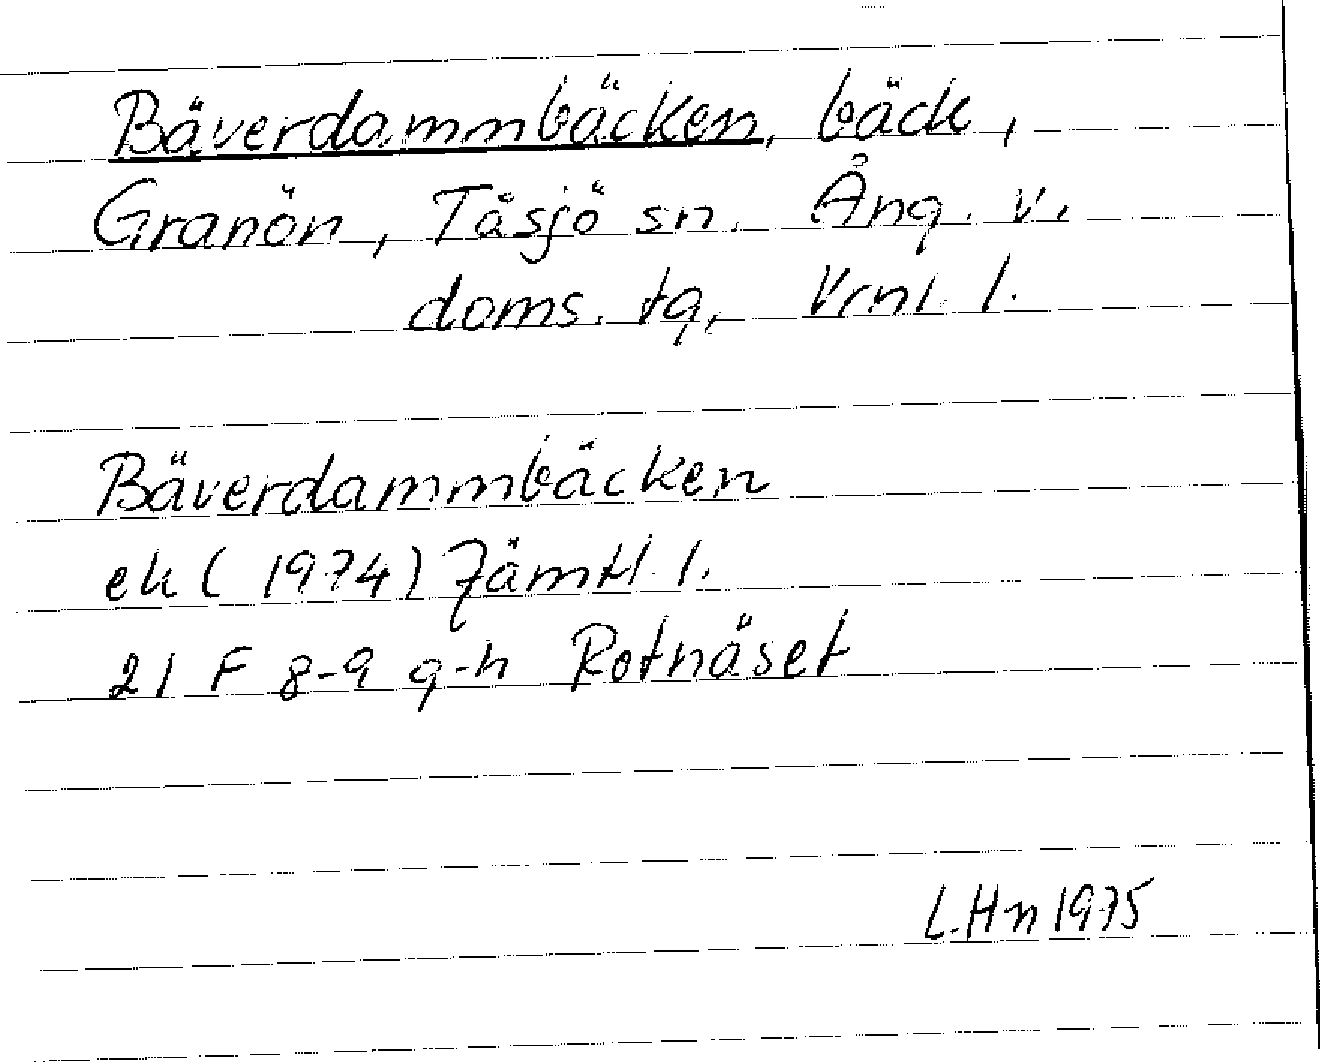 Bäverdammbäcken, bäck,
Granön, Tåsjö sn. Ång. v.
doms. tg, Vrnl. l.
Bäverdammbäcken
ek (1974) Jämtl. l.
21 F 8-9 g-h Rotnäset
L.Hn 1975